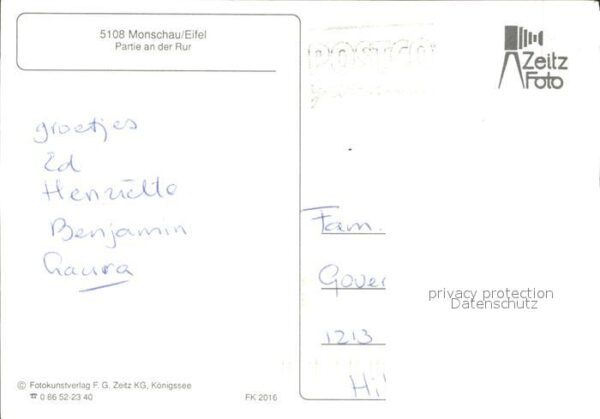 5108 Monschau/Eifel
Partie an der Rur
Zeitz
Foto
groetjes
Ed
Henriëtte
Benjamin
Laura
Fam.
Gover
1213
Hi
privacy protection
Datenschutz
© Fotokunstverlag F. G. Zeitz KG, Königssee
☎ 0 86 52-23 40
FK 2016